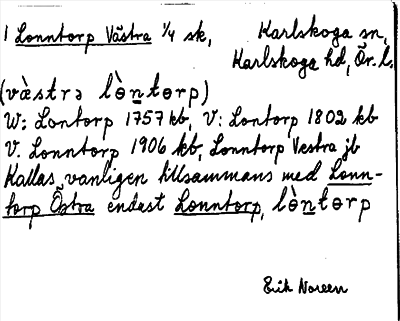 1 Lonntorp Västra 1/4 sk, Karlskoga sn,
Karlskoga hd, Ör. l.
(vàstrə lɵ̀ntɵrp)
W: Lontorp 1757 kb, V: Lontorp 1802 kb
V. Lonntorp 1906 kb, Lonntorp Vestra jb
Kallas vanligen tillsammans med Lonn-
torp Östra endast Lonntorp, lɵ̀ntɵrp
Erik Noreen